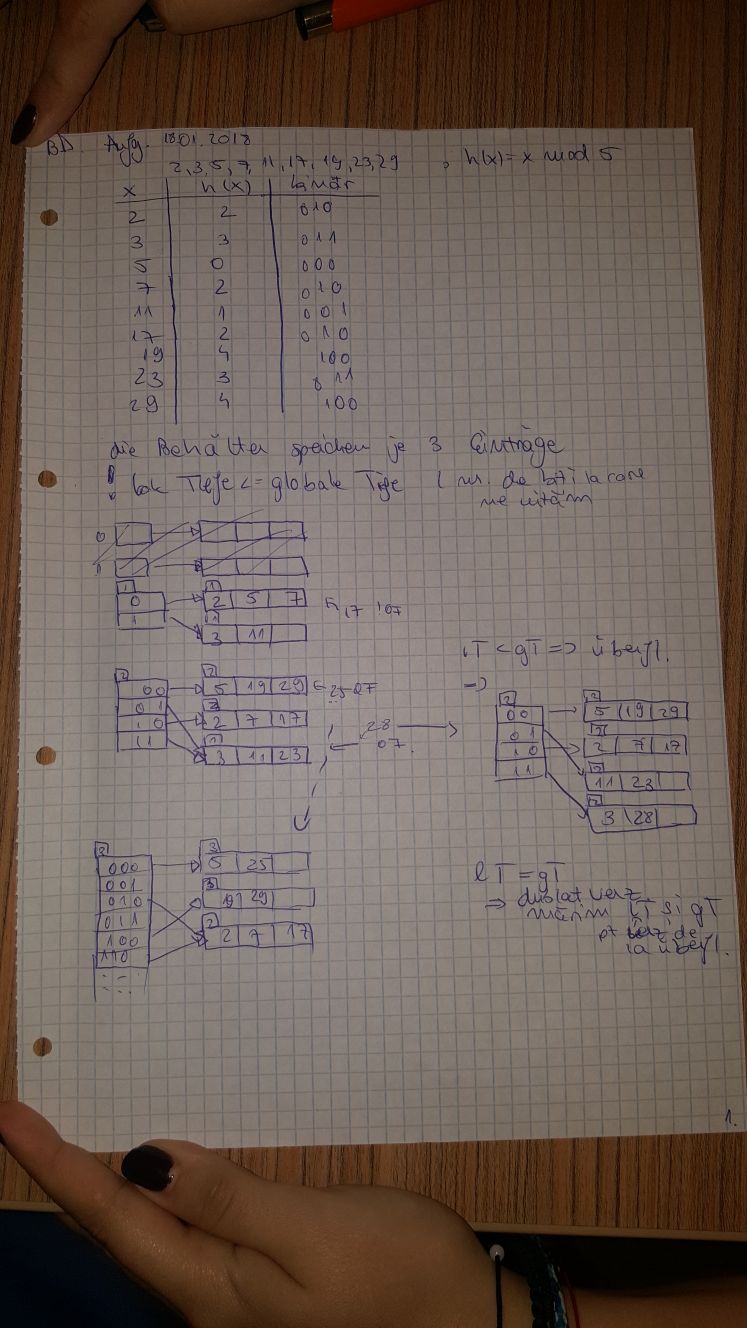 BD. Aufg. 18.01.2018
2,3,5,7,11,17,19,23,29 , h(x)=x mod 5
x h(x) binär
2 2 010
3 3 011
5 0 000
7 2 010
11 1 001
17 2 010
19 4 100
23 3 011
29 4 100
die Behälter speichern je 3 Einträge
! lok Tiefe <= globale Tiefe ( nr. de biti la care
ne uităm
0
1
1 1
0 2 5 7 17
1 1
3 11
lT < gT => überfl.
=>
2 2
00 5 19 29
01 2
10 2 7 17
11 1
3 11 23
28
07.
2 2
00 5 19 29
01 2
10 2 7 17
11 2
11 23
2
3 28
3 3
000 5 25
001 3
010 19 29
011 2
100 2 7 17
110
lT = gT
=> dublat verz
mărim lT și gT
pt de
la überfl.
1.